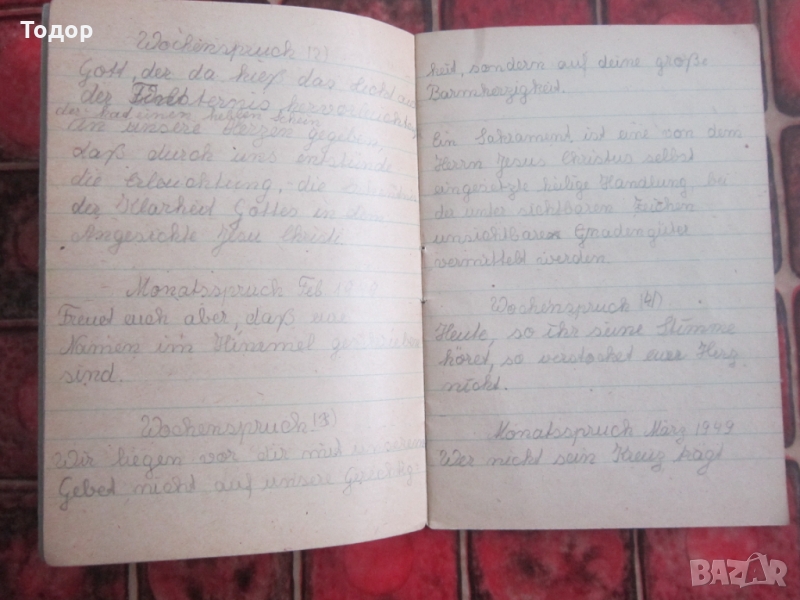 Тодор
Wochenspruch (2)
Gott, der da hieß das Licht aus
der Finsternis hervorleuchten
der hat einen hellen Schein
in unsere Herzen gegeben,
daß durch uns entstünde
die Erleuchtung, die
der Klarheit Gottes in dem
Angesichte Jesu Christi
Monatsspruch Feb. 1949
Freuet euch aber, daß
Namen im Himmel geschrieben
sind.
Wochenspruch (3)
Wir liegen vor dir mit unserem
Gebet, nicht auf unsere Gerechtig-
keit, sondern auf deine große
Barmherzigkeit.
Ein Sakrament ist eine von dem
Herrn Jesus Christus selbst
eingesetzte heilige Handlung, bei
da unter sichtbaren Zeichen
unsichtbare Gnadengüter
vermittelt werden.
Wochenspruch (4)
Heute, so ihr seine Stimme
höret, so verstocket euer Herz
nicht.
Monatsspruch März 1949
Wer nicht sein Kreuz trägt
BAZAR